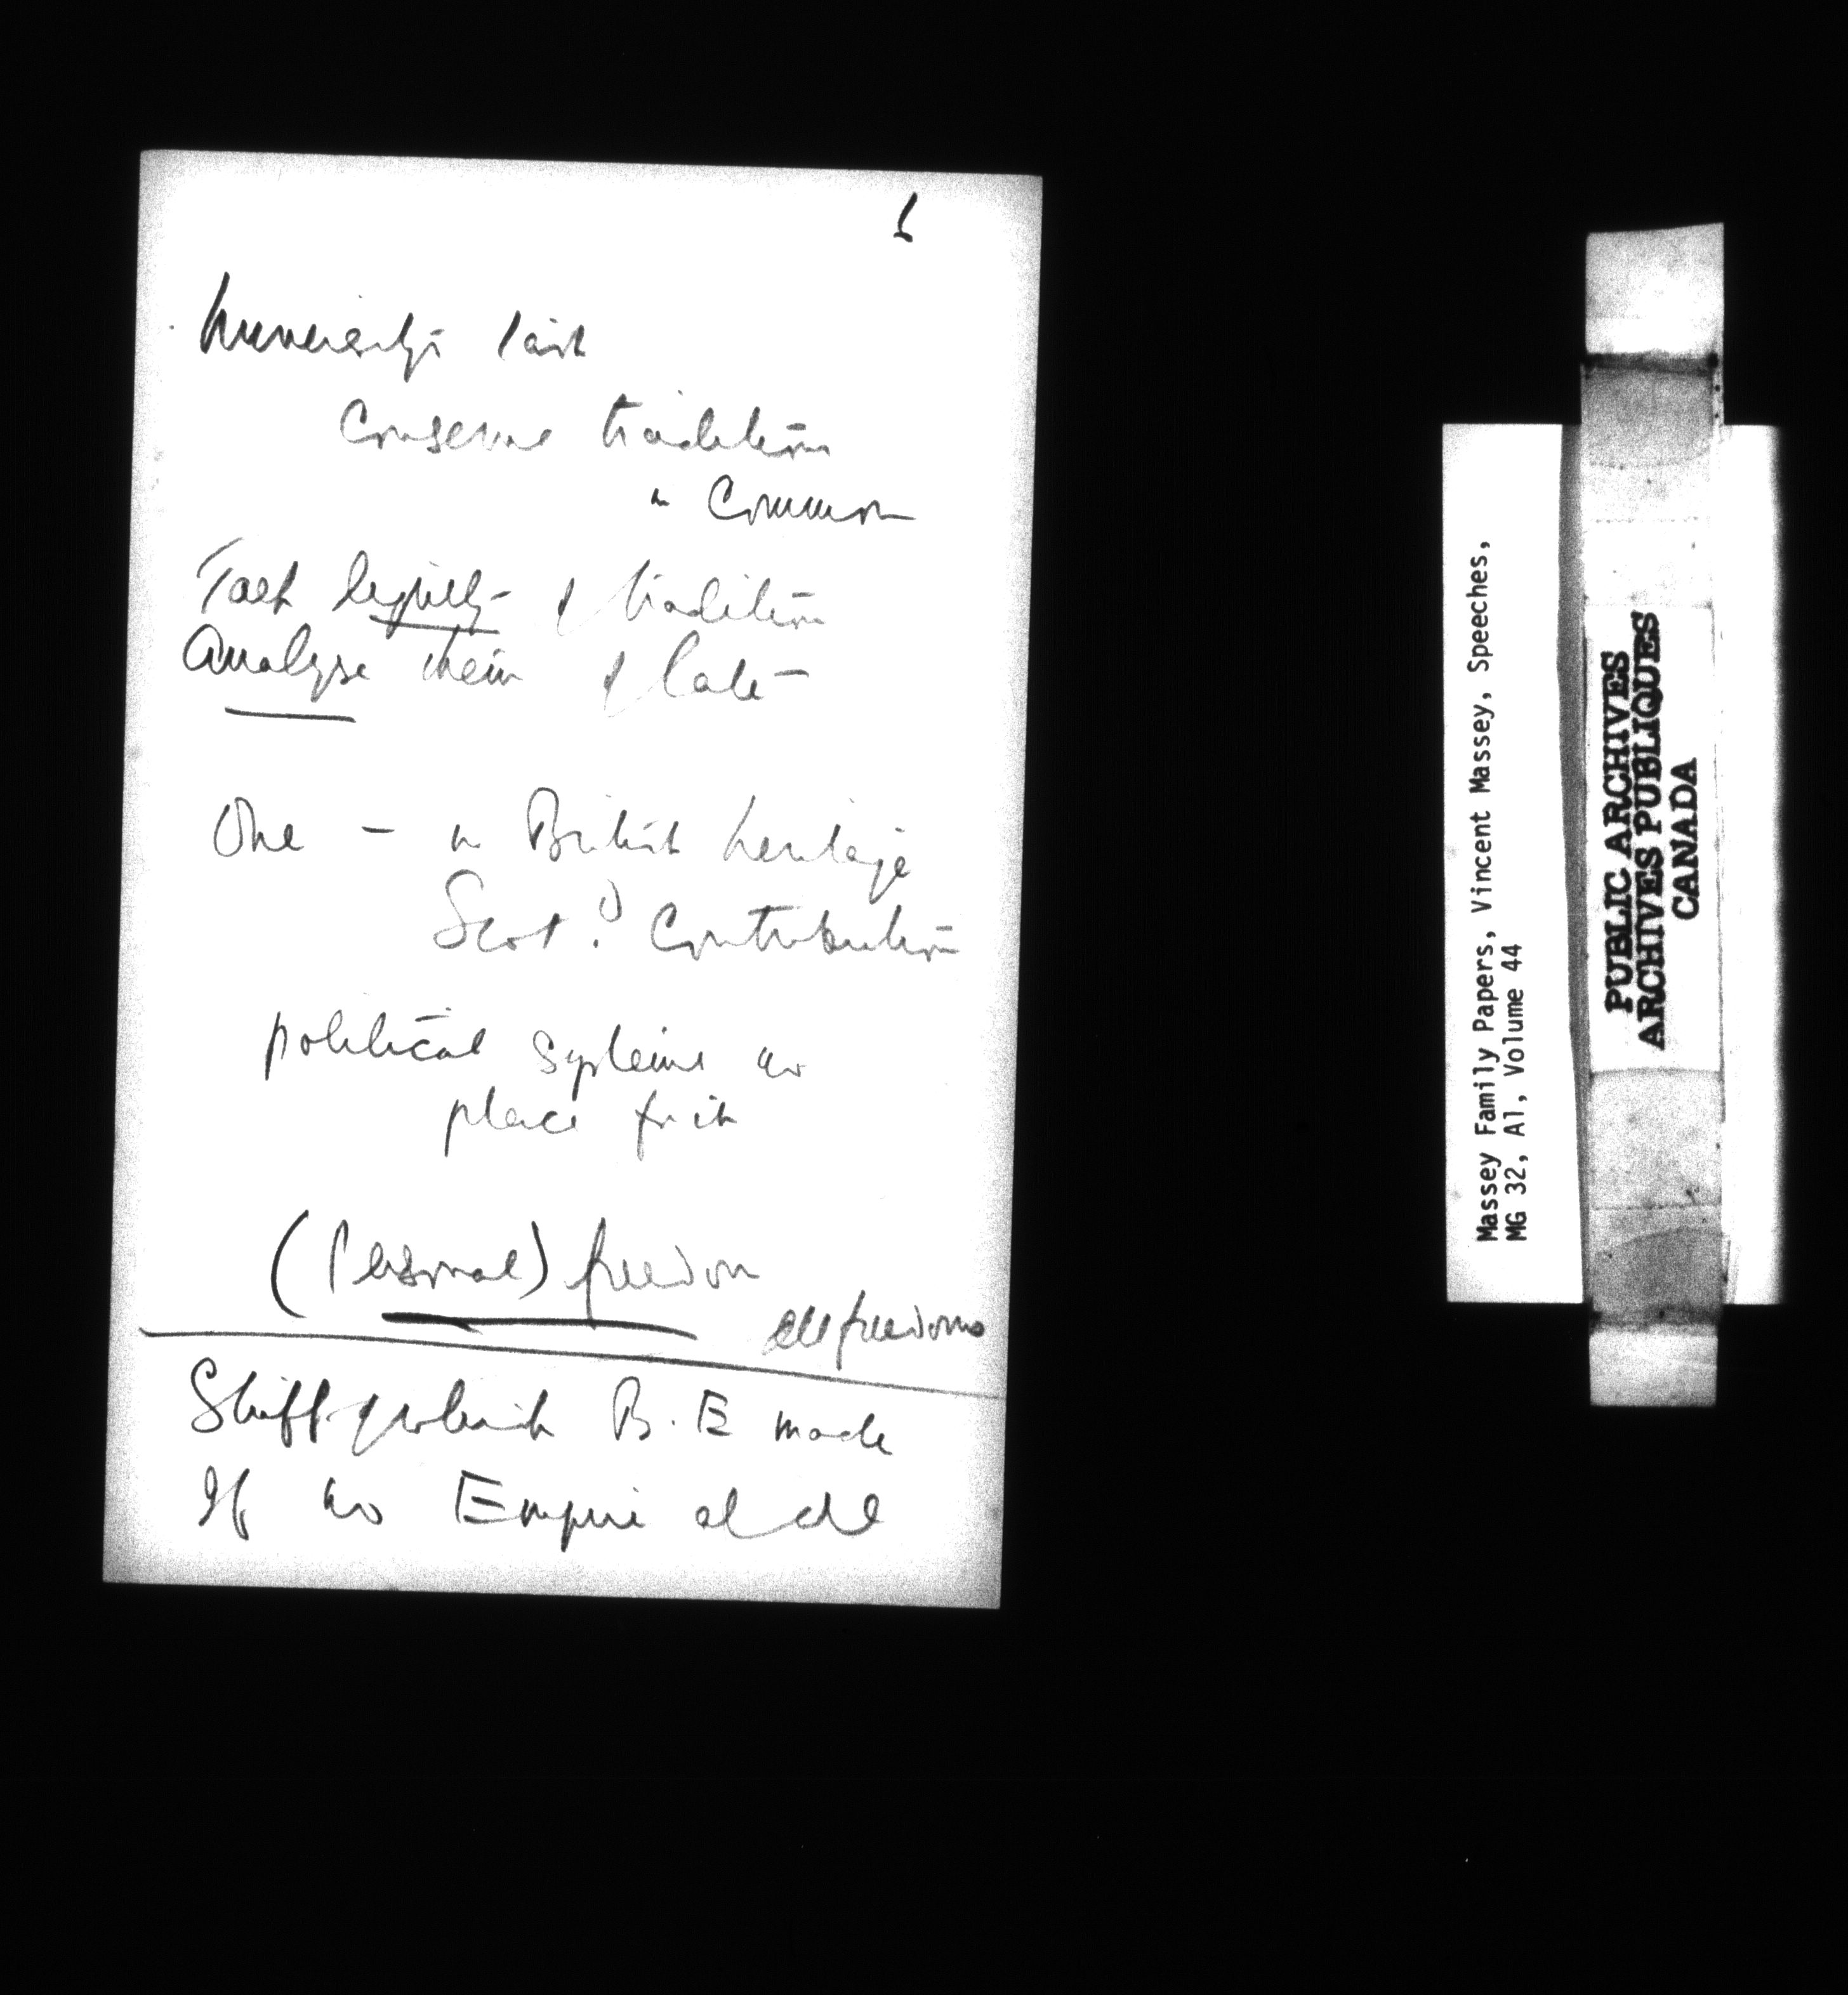 University's task
Conserve tradition
in Common
Talk lightly of tradition
Analyse them of late —
One — in British heritage
Scot. Contribution
political systems no
place for it
(Personal) freedom
all freedoms
Stuff of which B.E made
If no Empire at all
Massey Family Papers, Vincent Massey, Speeches,
MG 32, A1, Volume 44
PUBLIC ARCHIVES
ARCHIVES PUBLIQUES
CANADA